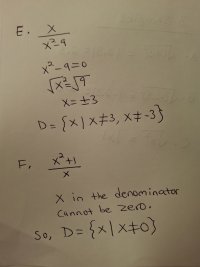 E. x
x²-9
x²-9=0
√x²=√9
x=±3
D={x|x≠3, x≠-3}
F. x²+1
x
x in the denominator
cannot be zero.
So, D={x|x≠0}